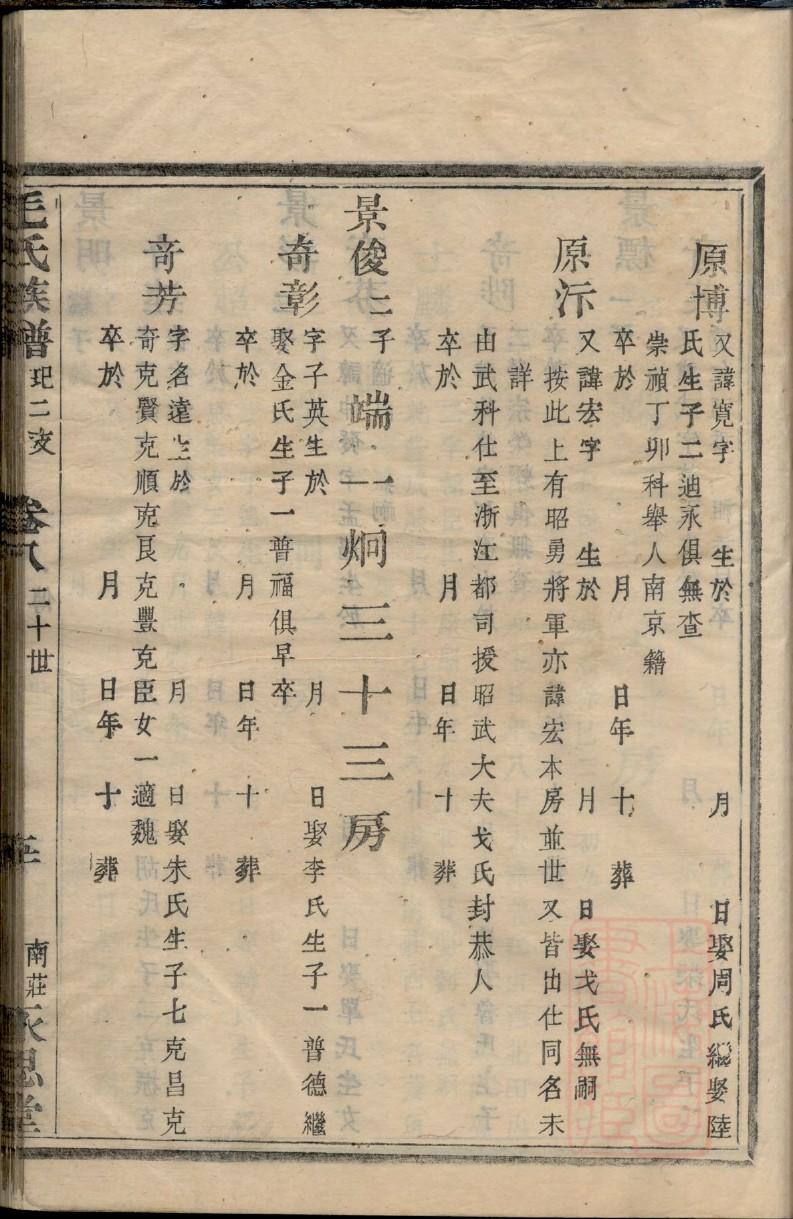 原博
又諱寬字 生於 月 日娶周氏繼娶陸
氏生子二迪永俱無查
崇禎丁卯科舉人南京籍
卒於 月 日年十 葬
原沶
又諱宏字 生於 月 日娶戈氏無嗣
按此上有昭勇將軍亦諱宏本房並世又皆出仕同名未
詳
由武科仕至浙江都司授昭武大夫戈氏封恭人
卒於 月 日年十 葬
景俊二子 端一炯三十三房
奇彰
字子英生於 月 日娶李氏生子一普德繼
娶金氏生子一普福俱早卒
卒於 月 日年十 葬
奇芳
字名遠生於 月 日娶朱氏生子七克昌克
奇克賢克順克良克豐克臣女一適魏
卒於 月 日年十 葬
毛氏族譜 玘二支 卷八 二十世 南莊永思堂